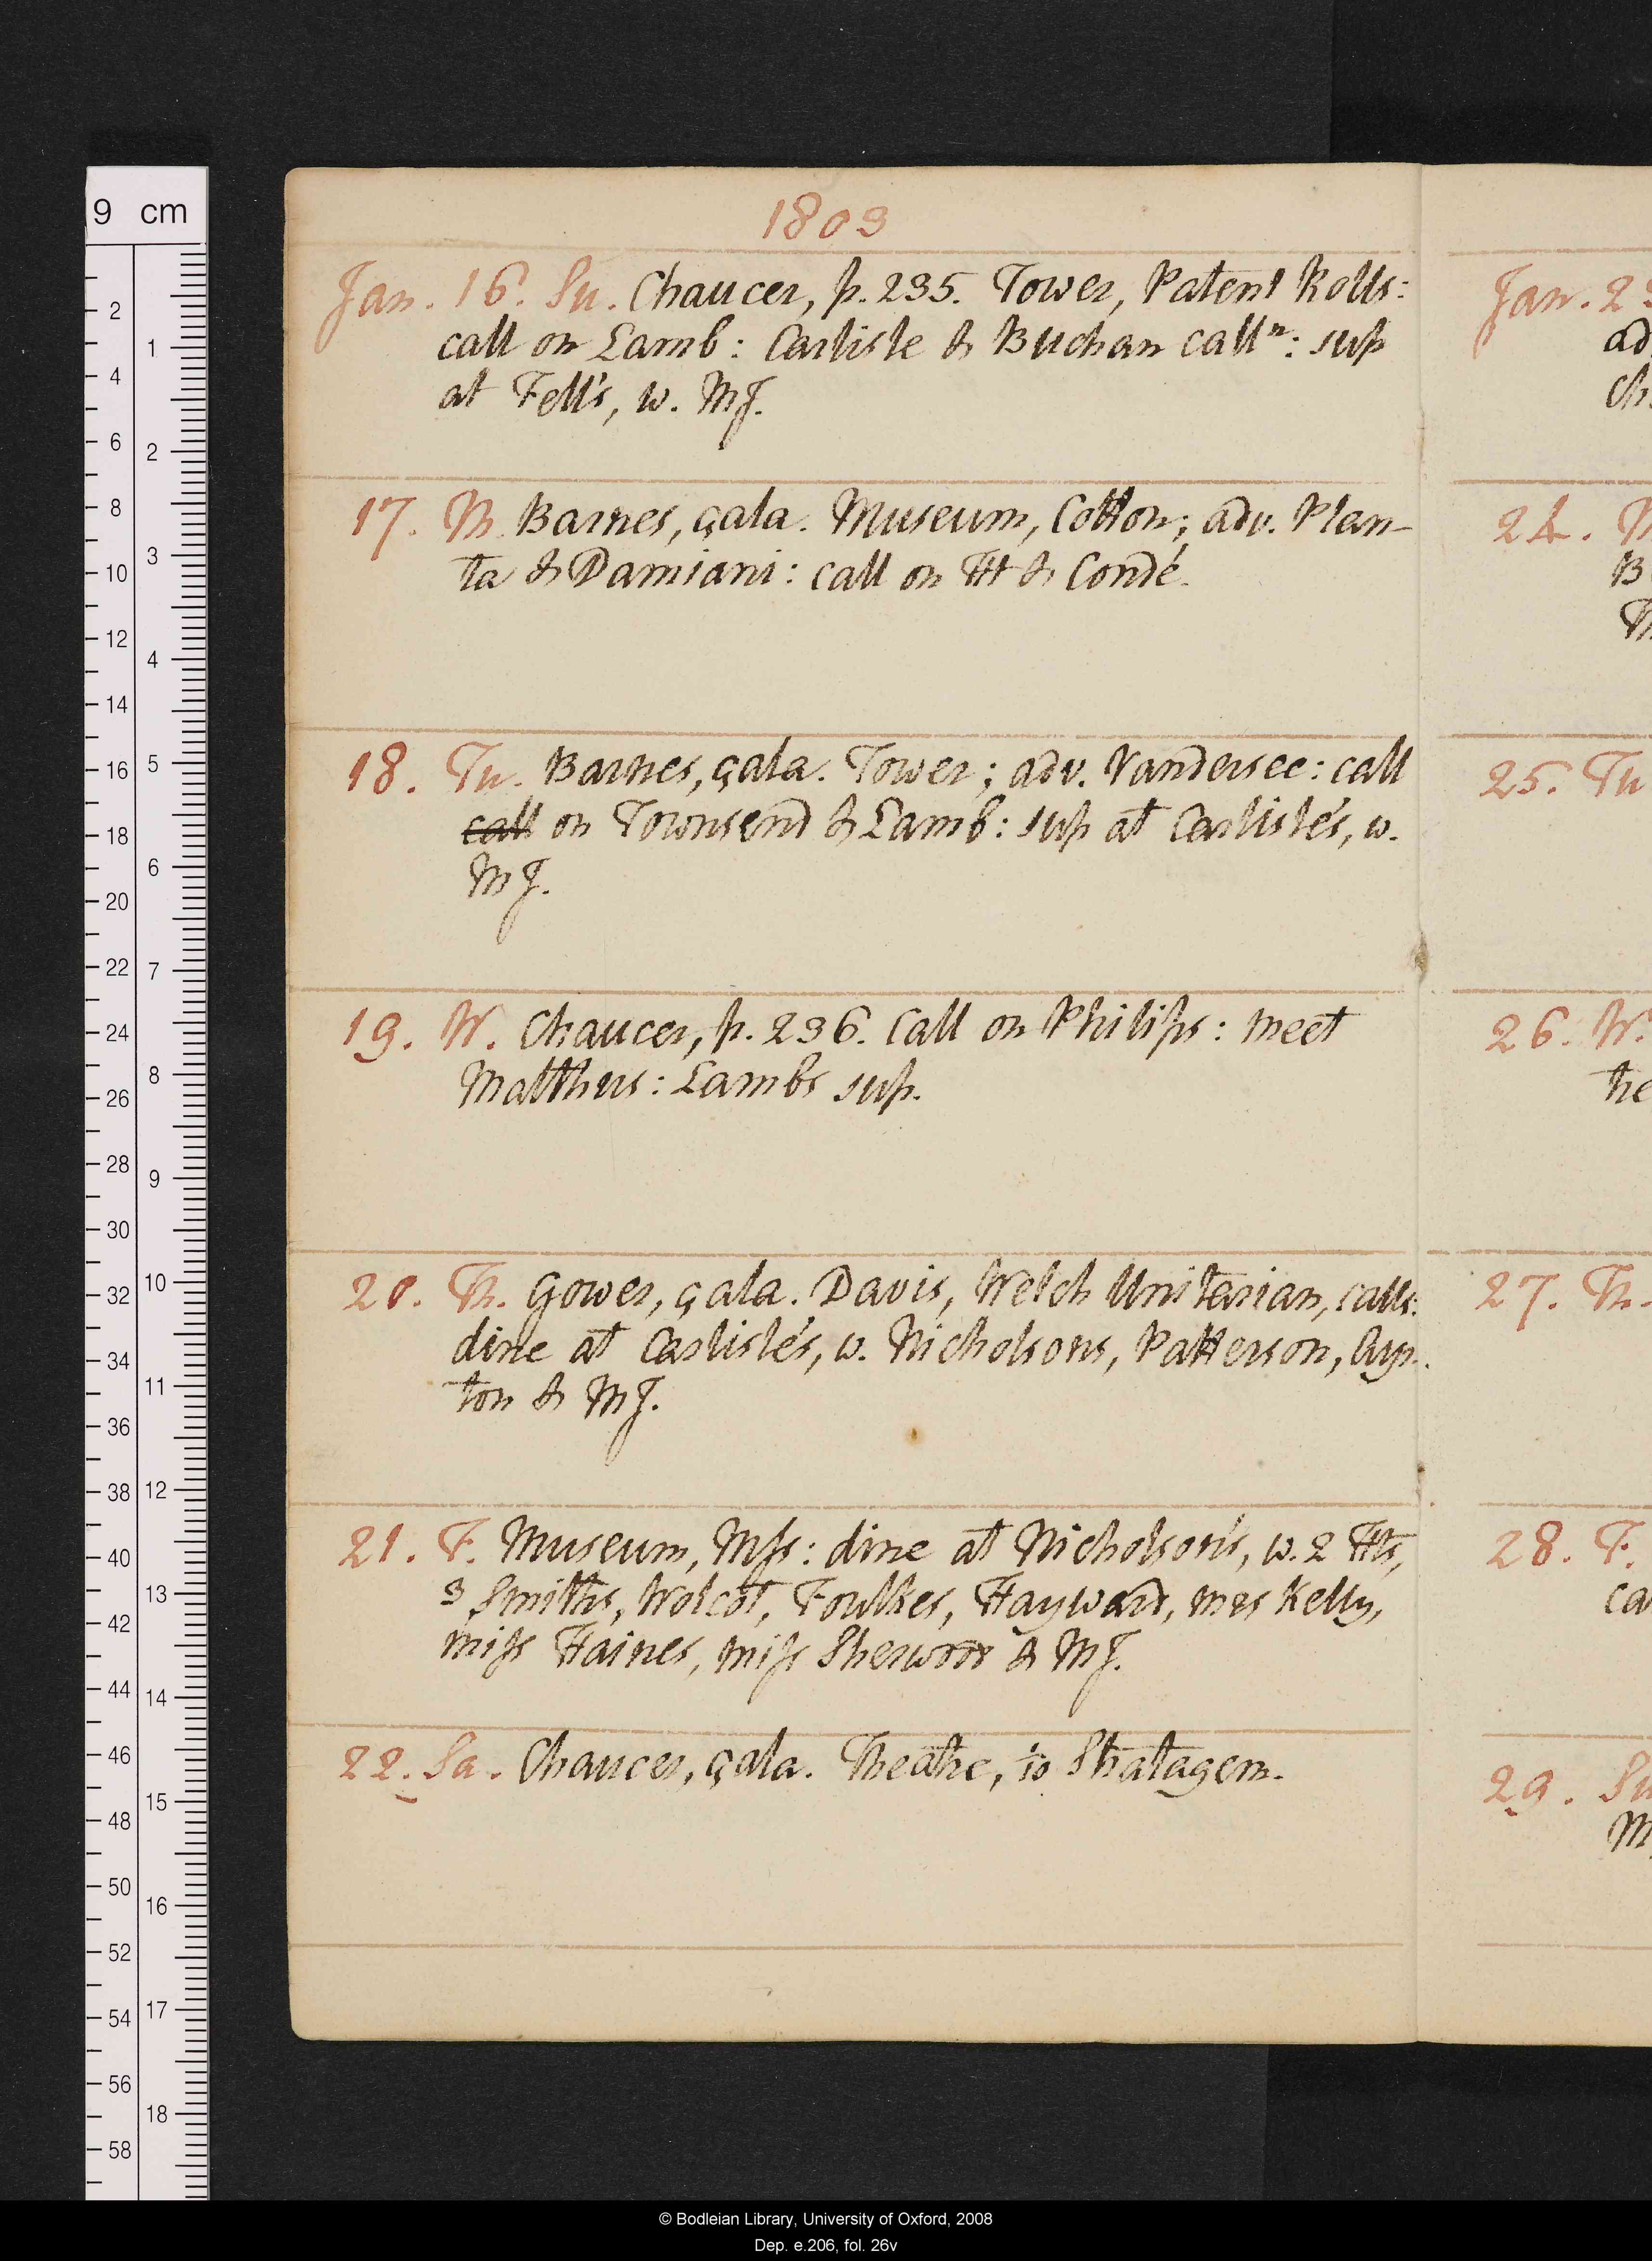 1803
Jan. 16. Su. Chaucer, p. 235. Tower, Patent Rolls:
call on Lamb: Carlisle & Buchan callⁿ: sup
at Fell's, w. MJ.
17. M. Barnes, çala. Museum, Cotton; adv. Plan-
ta & Damiani: call on Ht & Condé.
18. Tu. Barnes, çala. Tower; adv. Vandersee: call
call on Townsend & Lamb: sup at Carlisle's, w.
MJ.
19. W. Chaucer, p. 236. Call on Philips: meet
Matthus: Lambs sup.
20. Th. Gower, çala. Davis, Welch Unitarian, calls:
dine at Carlisle's, w. Nicholsons, Patterson, Ayr-
ton & MJ.
21. F. Museum, Mss: dine at Nicholson's, w. 2 Hts,
3 Smiths, Wolcot, Foulkes, Hayward, mrs Kelly,
miss Haines, miss Sherwood & MJ.
22. Sa. Chaucer, çala. Theatre, ½ Stratagem.
Jan. 23
ad
Ch
24. M
B
Th
25. Tu
26. W.
he
27. Th.
28. F.
ca
29. Su
M
9 cm
2
4
6
8
10
12
14
16
18
20
22
24
26
28
30
32
34
36
38
40
42
44
46
48
50
52
54
56
58
1
2
3
4
5
6
7
8
9
10
11
12
13
14
15
16
17
18
© Bodleian Library, University of Oxford, 2008
Dep. e.206, fol. 26v